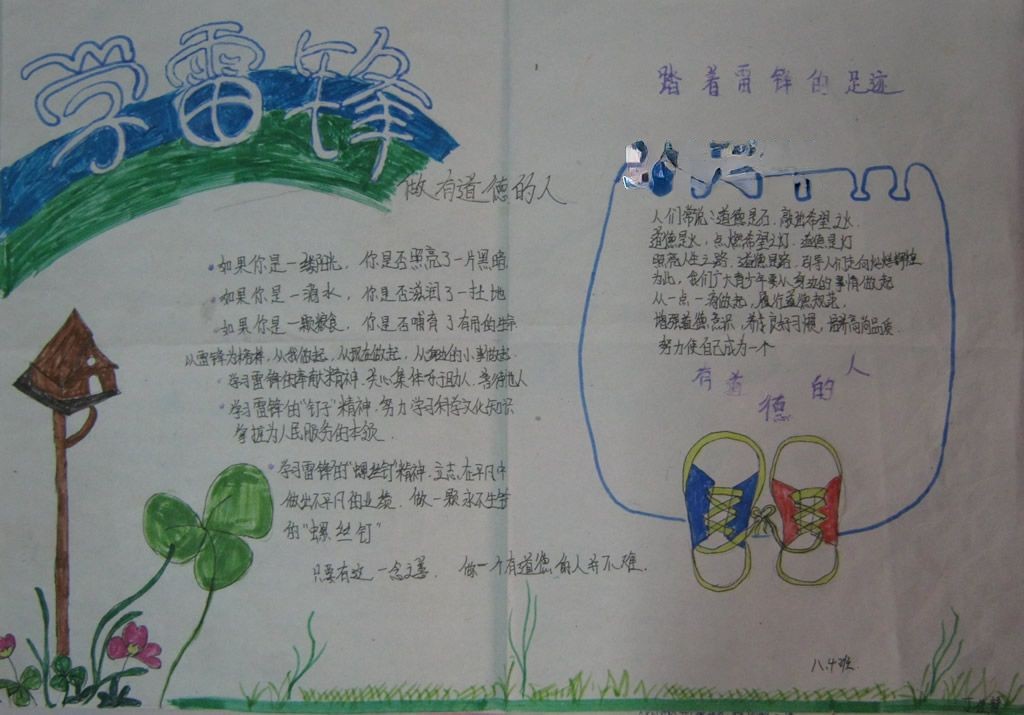 学雷锋
做有道德的人
如果你是一缕阳光,你是否照亮了一片黑暗
如果你是一滴水,你是否滋润了一土地
如果你是一颗粮食,你是否哺育了有用的生命
从雷锋为榜样,从我做起,从现在做起,从身边的小事做起.
学习雷锋的奉献精神.关心集体 助人.善待他人
学习雷锋的"钉子"精神.努力学习科学文化知识
掌握为人民服务的本领.
学习雷锋的"螺丝钉"精神.立志在平凡中
做出不平凡的业绩.做一颗永不生锈
的"螺丝钉"
只要有这一念之善.做一个有道德的人并不难.
踏着雷锋的足迹
人们常说:道德是石.敲出希望之火.
道德是火,点燃希望之灯.道德是灯
照亮人生之路.道德是路.引导人们走向灿烂辉煌
为此,我们广大青少年要从身边的事情做起
从一点一滴做起,履行道德规范,
增强道德意识,养良好习惯,培养高尚品质.
努力使自己成为一个
有道德的人
八.4班.